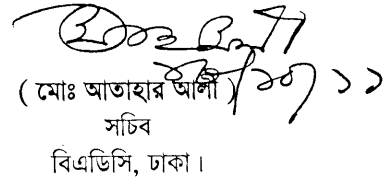 ( মোঃ আতাহার আলী )
সচিব
বিএডিসি, ঢাকা ।